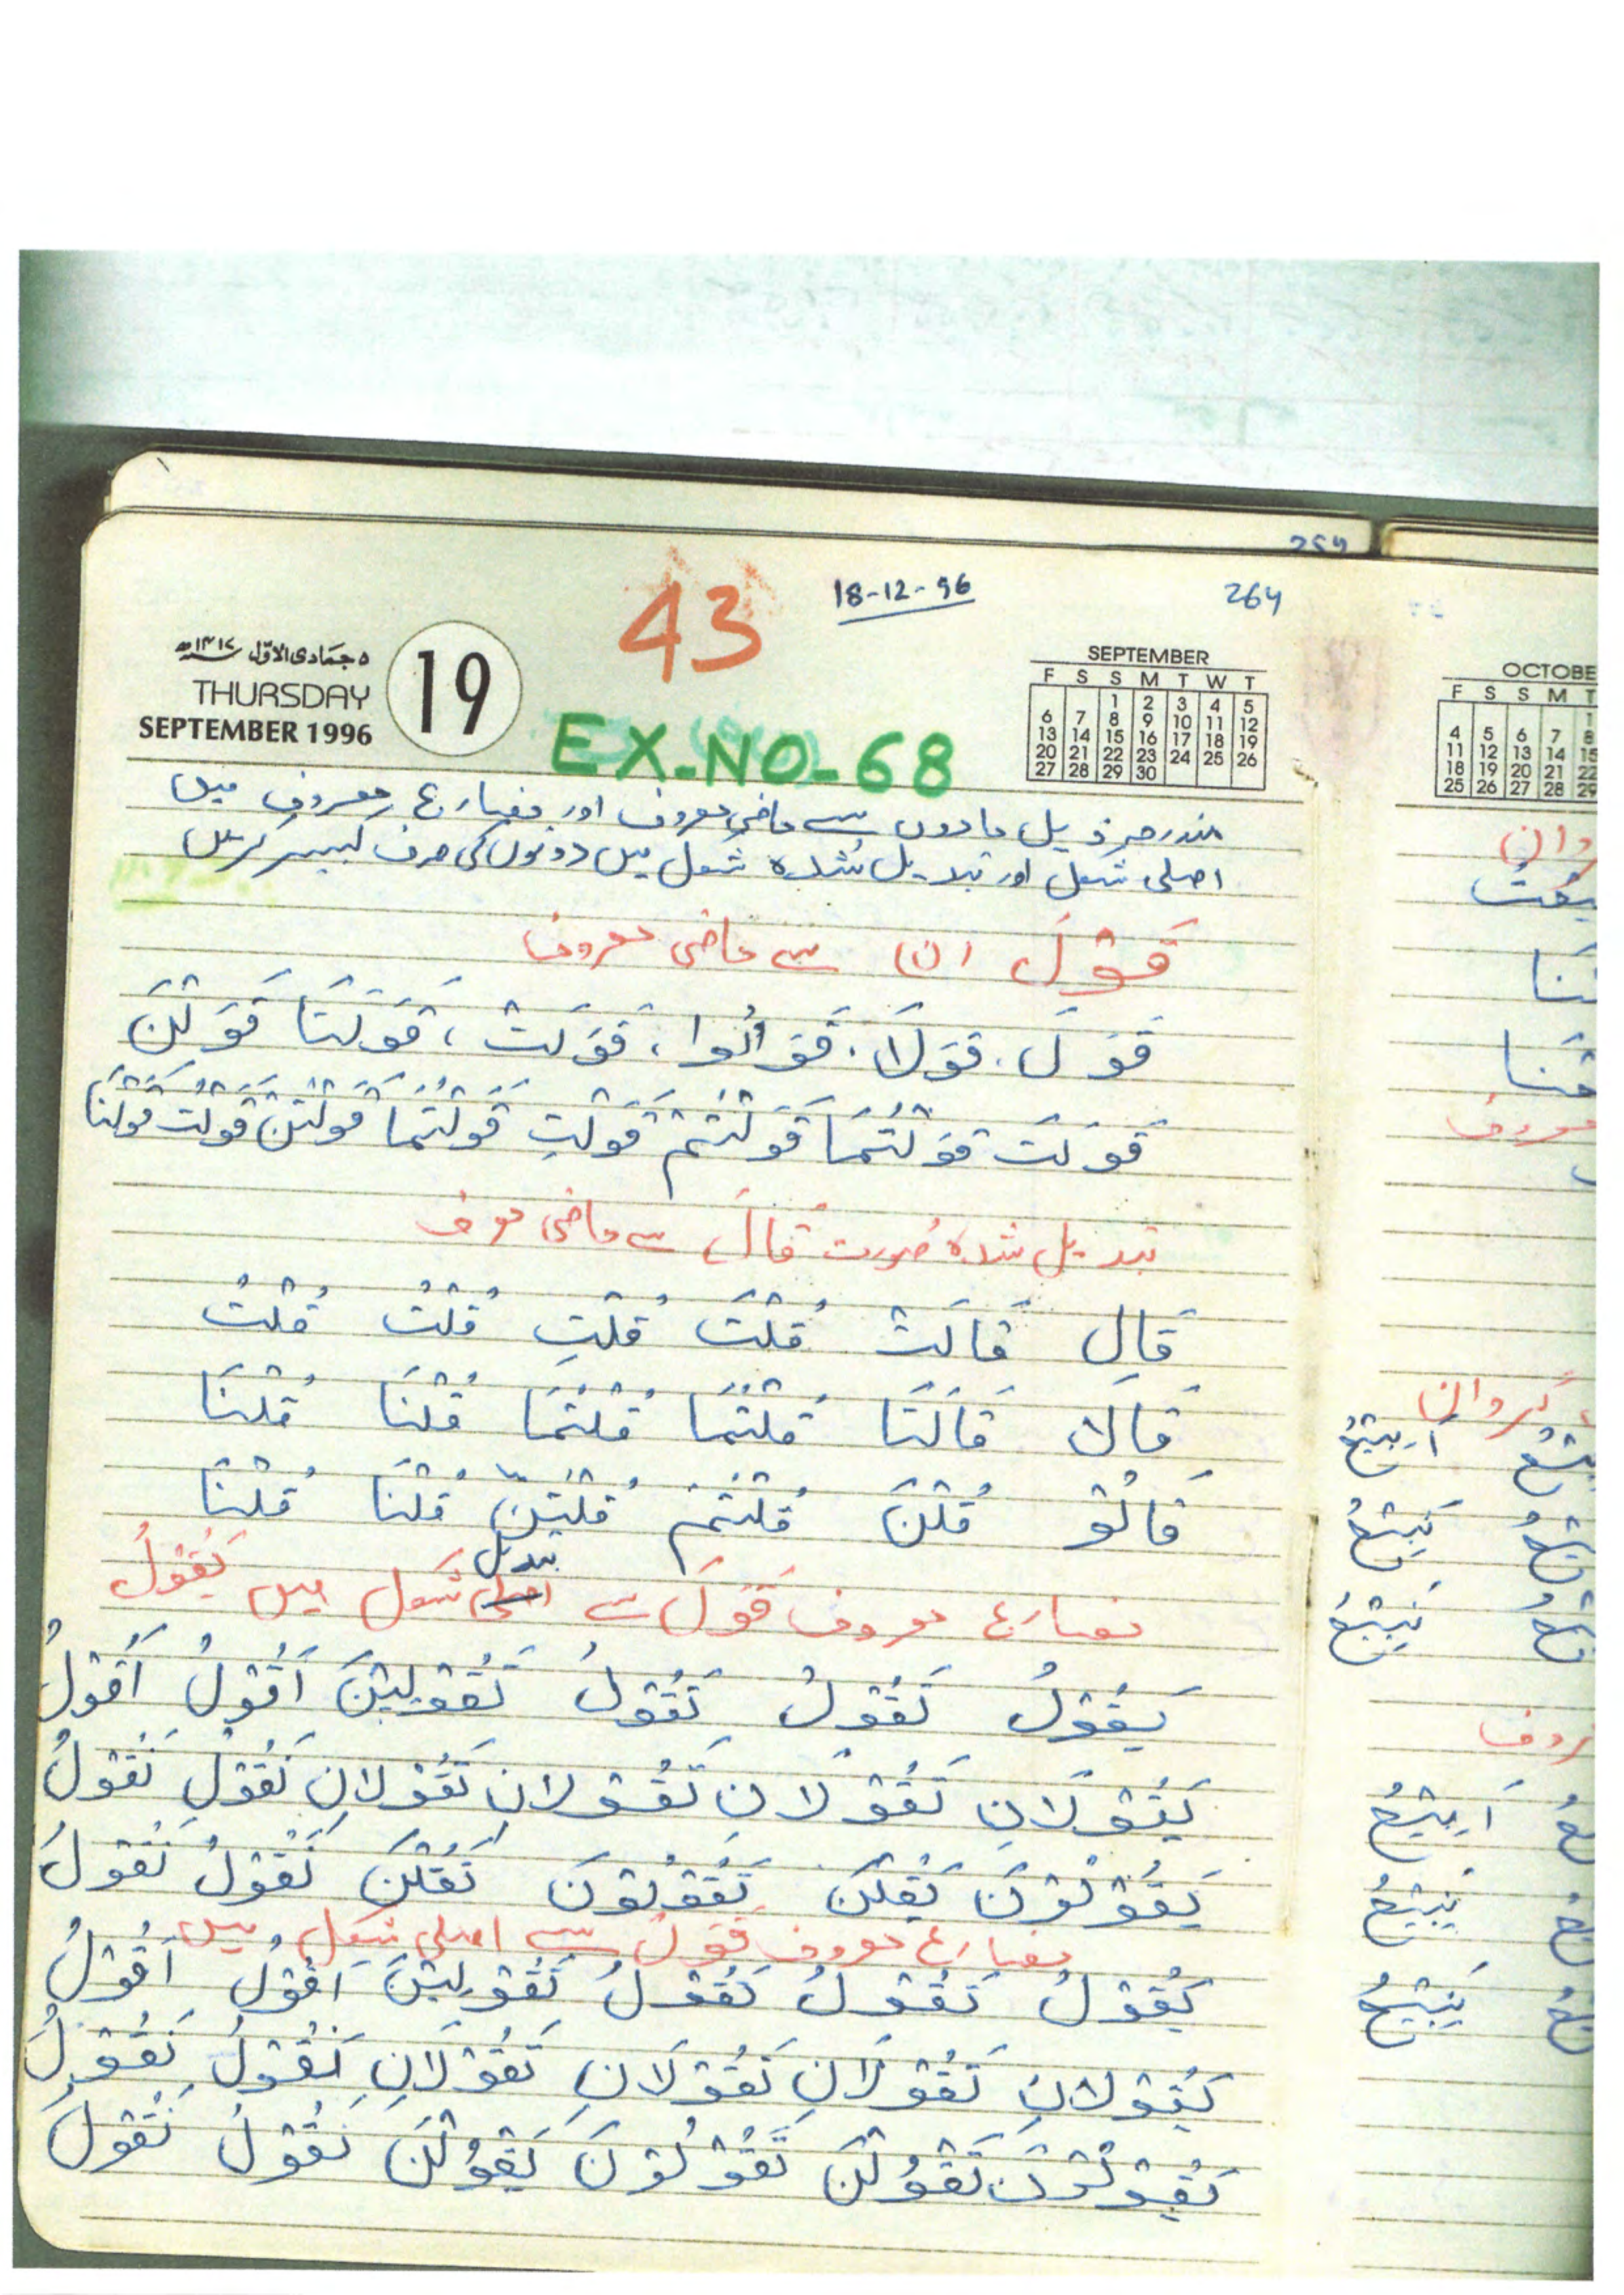 264
18-12-96
43
۵ جمادی الاوّل ۱۴۱۷ھ
THURSDAY
SEPTEMBER 1996
19
SEPTEMBER
F S S M T W T
1 2 3 4 5
6 7 8 9 10 11 12
13 14 15 16 17 18 19
20 21 22 23 24 25 26
27 28 29 30
EX-NO-68
مندرجہ ذیل مادوں سے ماضی معروف اور مضارع معروف میں
اصلی شکل اور تبدیل شدہ شکل میں دونوں کی صرف کبیر کریں
قَوَلَ (ن) سے ماضی معروف
قَوَلَ، قَوَلَا، قَوَلُوا، قَوَلَتْ، قَوَلَتَا قَوَلْنَ
قَوَلْتَ قَوَلْتُمَا قَوَلْتُمْ قَوَلْتِ قَوَلْتُمَا قَوَلْتُنَّ قَوَلْتُ قَوَلْنَا
تبدیل شدہ صورت قَالَ سے ماضی معروف
قَالَ قَالَتْ قُلْتَ قُلْتِ قُلْتُ قُلْتُ
قَالَا قَالَتَا قُلْتُمَا قُلْتُمَا قُلْنَا قُلْنَا
قَالُوْ قُلْنَ قُلْتُمْ قُلْتُنَّ قُلْنَا قُلْنَا
تبدیل
مضارع معروف قَوَلَ سے اصلی شکل میں يَقُوْلُ
يَقُوْلُ تَقُوْلُ تَقُوْلُ تَقُوْلِيْنَ اَقُوْلُ اَقُوْلُ
يَقُوْلَانِ تَقُوْلَانِ تَقُوْلَانِ تَقُوْلَانِ نَقُوْلُ نَقُوْلُ
يَقُوْلُوْنَ يَقُلْنَ تَقُوْلُوْنَ تَقُلْنَ نَقُوْلُ نَقُوْلُ
مضارع معروف قَوَلَ سے اصلی شکل میں
يَقْوُلُ تَقْوُلُ تَقْوُلُ تَقْوُلِيْنَ اَقْوُلُ اَقْوُلُ
يَقْوُلَانِ تَقْوُلَانِ تَقْوُلَانِ تَقْوُلَانِ نَقْوُلُ نَقْوُلُ
يَقْوُلُوْنَ تَقْوُلْنَ تَقْوُلُوْنَ يَقْوُلْنَ نَقْوُلُ نَقْوُلُ
OCTOBE
F S S M T
1
4 5 6 7 8
11 12 13 14 15
18 19 20 21 22
25 26 27 28 29